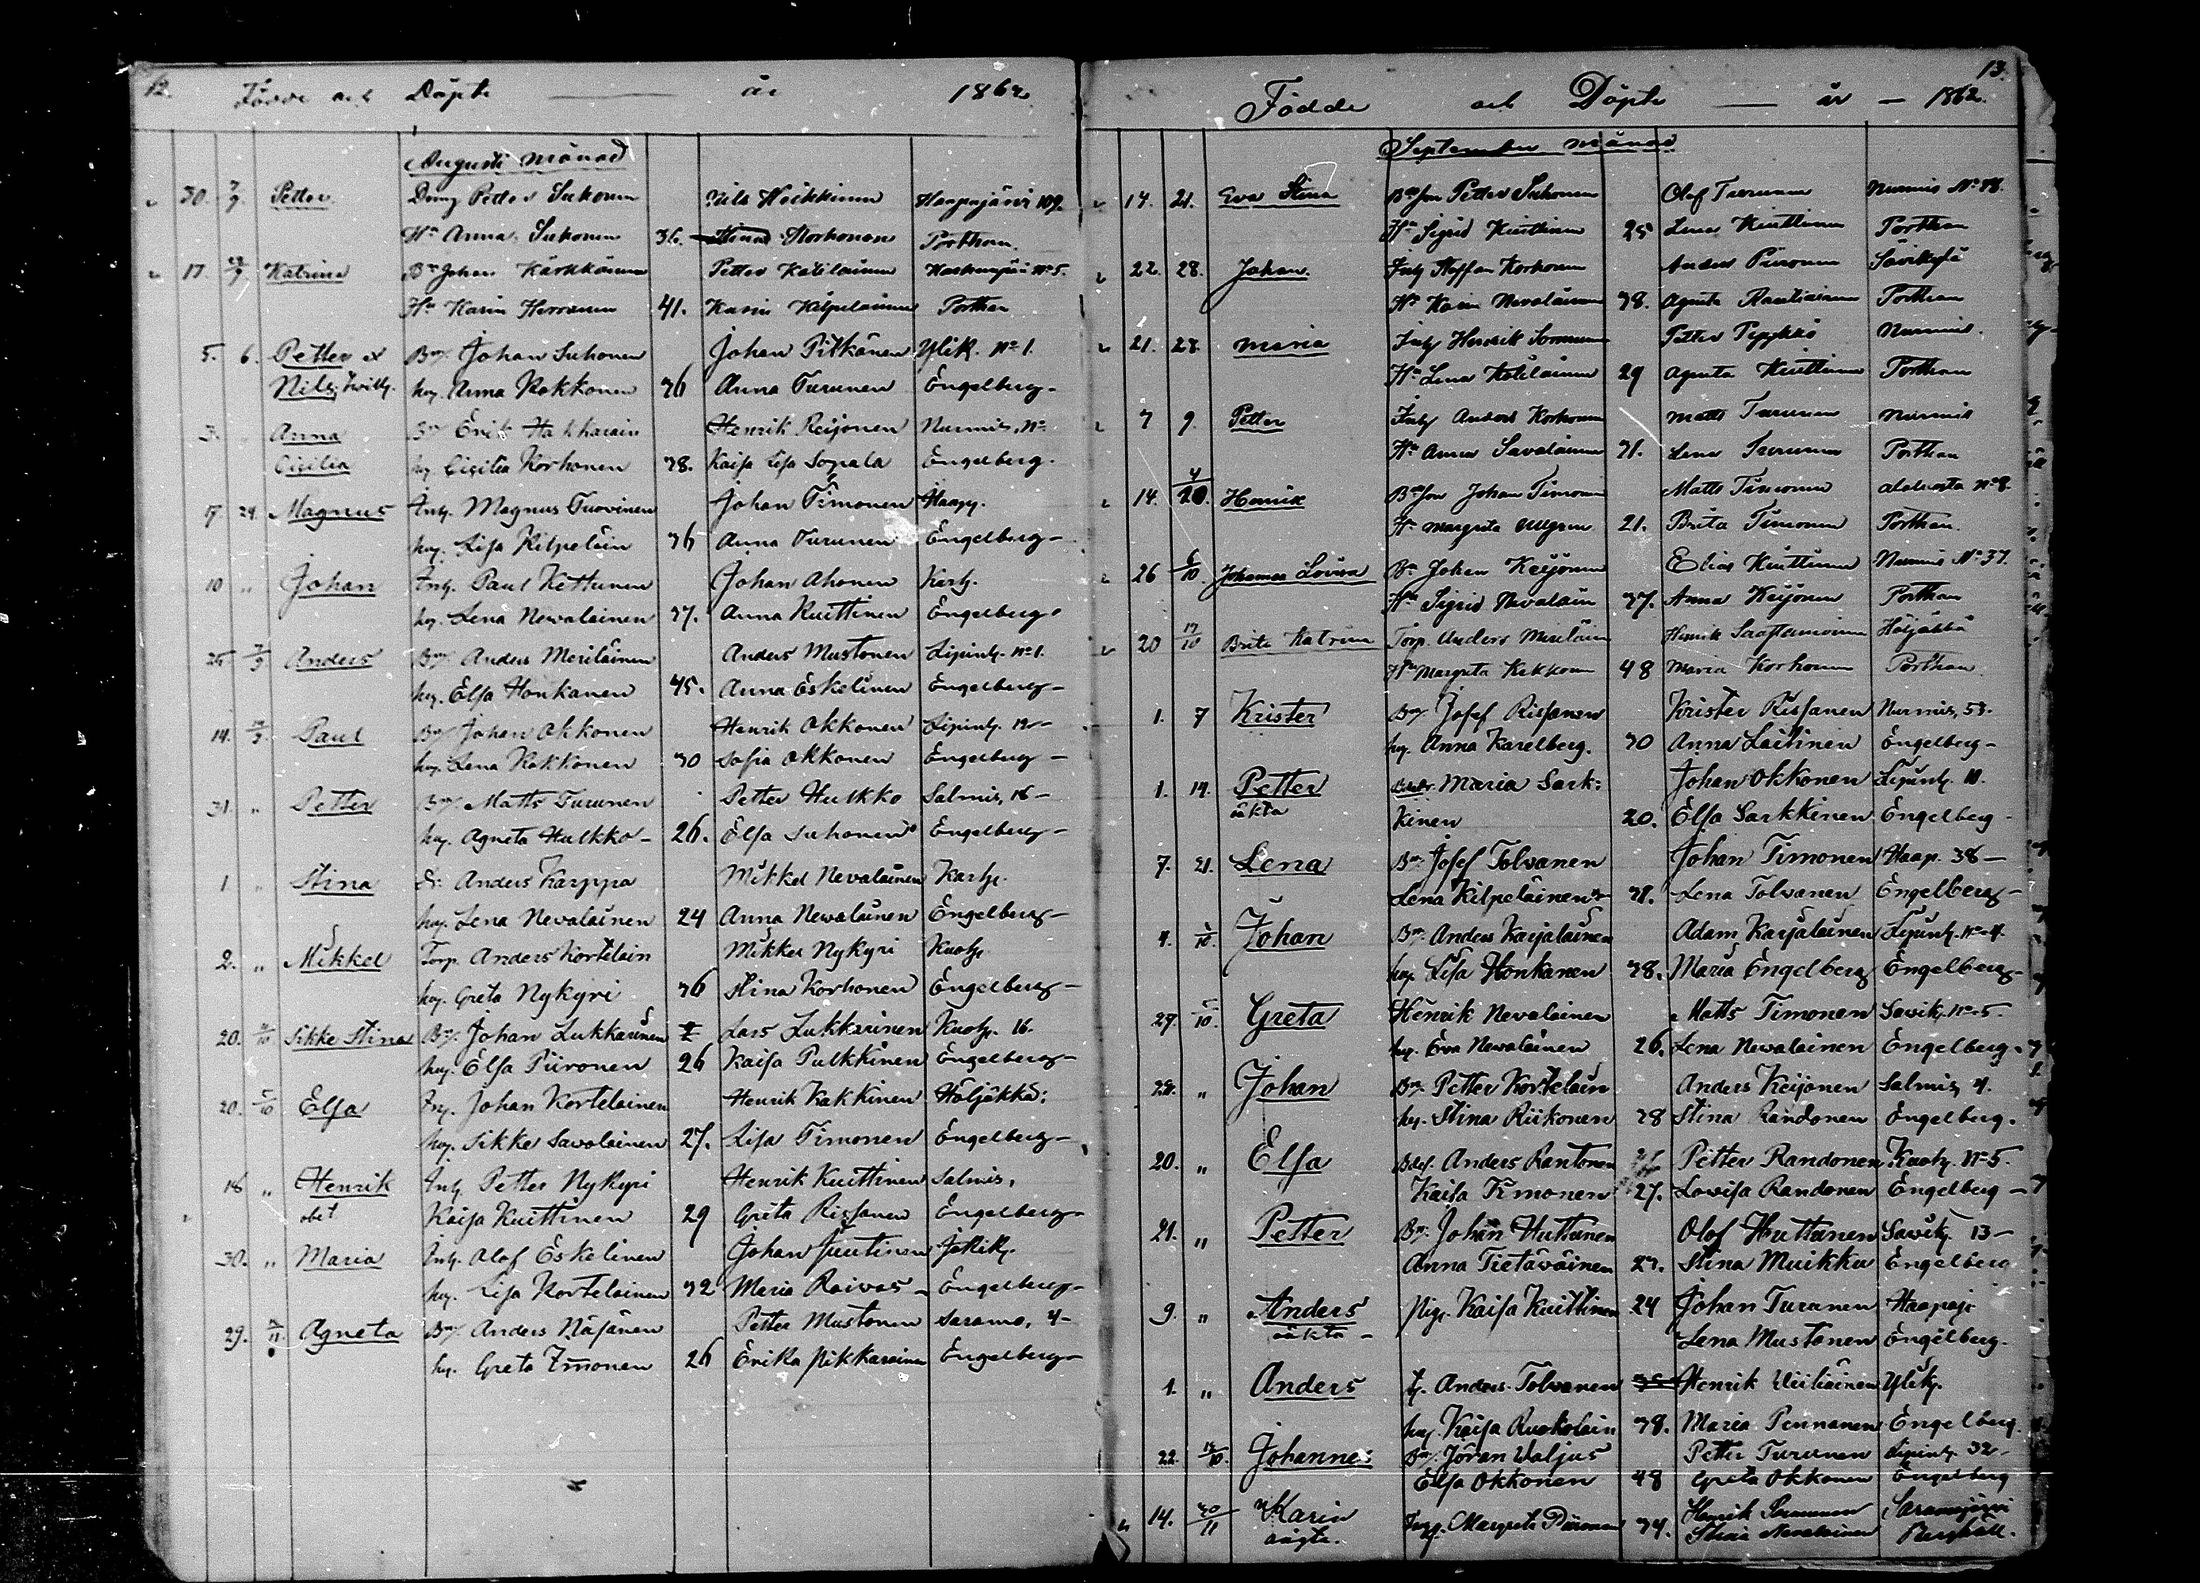 12. Födde och Döpte — år 1862
Augusti månad
30. 7/9 Petter. Dräng Petter Suhonen Nils Heikkinen Haapajärvi 109.
Hu Anna Suhonen 36. Stina Korhonen Porthan.
17. 7 Katrina Bn Johan Kärkkäinen Petter Kätiläinen No 5.
Hu Karin Herranen 41. Karin Kilpeläinen Porthan
5. 6. Petter et By. Johan Suhonen Johan Pitkänen Ylik. No 1.
Nils, tvill. hu. Anna Kokkonen 36 Anna Turunen Engelberg-
3. " Anna Bn Erik Hakkarain Henrik Reijonen Nurmis, No
Cicilia hu Cicilia Korhonen 38. Kaisa Lisa Sopala Engelberg.
17 24. Magnus Inh. Magnus Tuovinen Johan Timonen Haapj.
hu. Lisa Kilpeläin 36 Anna Turunen Engelberg-
10 " Johan Inh. Paul Kettunen Johan Ahonen Karh.
hu. Lena Newalainen 37. Anna Kuittinen Engelberg
25 7/9 Anders By. Anders Meriläinen Anders Mustonen Lipinl. No 1.
hu. Elsa Honkanen 45. Anna Eskelinen Engelberg-
14. 14/9 Paul By. Johan Okkonen Henrik Okkonen Lipinl. 12-
hu. Lena Kokkonen 30 Sofia Okkonen Engelberg-
31. " Petter By. Matts Turunen Petter Hulkko Salmis, 16-
hu. Agneta Hulkko- 26. Elsa Suhonen Engelberg-
1 " Stina Dr. Anders Karppa Mikkel Nevalainen Karh.
hu. Lena Newalainen 24 Anna Newalainen Engelberg-
2. " Mikkel Torp. Anders Kortelain Mikkel Nykyri Kuohj.
hu. Greta Nykyri 36 Stina Korhonen Engelberg-
20. /10 Sikke Stina By. Johan Lukkarinen Lars Lukkarinen Kuohj. 16.
hu. Elsa Piironen 26 Kaisa Pulkkinen Engelberg-
20. 5/10 Elsa Inh. Johan Kortelainen Henrik Kakkinen Höljäkkä:
hu. Sikke Sawolainen 27. Lisa Timonen Engelberg-
18 " Henrik Inh. Petter Nykyri Henrik Kuittinen Salmis,
obit Kaisa Kuittinen 29 Greta Rissanen Engelberg-
30. " Maria Inh. Olof Eskelinen Johan Juutinen Jokik.
hu. Lisa Kortelainen 32 Maria Raivas - Engelberg-
29. /11. Agneta By. Anders Näsänen Petter Mustonen Saramo, 4-
hu. Greta Timonen 26 Erika Pikkarainen Engelberg-
13.
Födde och Döpte — år — 1862.
September månad
14. 21. Eva Stina Bnson Petter Suhonen Olof Turunen Nurmis No 88.
Hu Sigrid Kuittinen 25 Lena Kuittinen Porthan
22. 28. Johan. Inh Staffan Korhonen Anders Piironen Savikylä
Hu Karin Nevalainen 38. Agneta Rautiainen Porthan
21. 28. Maria Inh Henrik Sormunen Petter Nurmis.
Hu Lena Kätiläinen 29 Agneta Kuittinen Porthan
7 9. Petter Inh Anders Korhonen Matts Turunen Nurmis
Hu Anna Savolainen 31. Lena Turunen Porthan
14. 4/20. Henrik Bnson Johan Timonen Matts Timonen No 8.
Hu Margreta 21. Brita Timonen Porthan.
26 6/10 Johanna Lovisa Bn Johan Keijonen Elias Kuittinen Nurmis No 37.
Hu Sigrid Nevalain 37. Anna Keijonen Porthan
20 19/10 Brita Katrina Torp. Anders Meriläin Henrik Höljäkkä
Hu Margreta Kokkonen 48 Maria Korhonen Porthan.
1. 7 Krister By. Josef Rissanen Krister Rissanen Nurmis, 53.
hu. Anna Karelberg. 30 Anna Laitinen Engelberg-
1. 14. Petter Maria Sark: Johan Okkonen Lipinl. 10.
oäkta kinen 20. Elsa Sarkkinen Engelberg-
7. 21. Lena By. Josef Tolwanen Johan Timonen Haap. 38-
Lena Kilpeläinen 31. Lena Tolwanen Engelberg-
4. 5/10. Johan By. Anders Karjalainen Adam Karjalainen Lipinl. No 4.
hu. Lisa Honkanen 38. Maria Engelberg Engelberg-
27. 5/10. Greta Henrik Nevalainen Matts Timonen Savik. No 5.
hu. Eva Newalainen 26. Lena Newalainen Engelberg.
28. " Johan By. Petter Kortelain Anders Keijonen Salmis, 4.
hu. Stina Riikonen 38 Stina Randonen Engelberg.
20. " Elsa Anders Rantonen Petter Randonen Kuohj. No 5.
Kaisa Timonen 27. Lowisa Randonen Engelberg-
21. " Petter By. Johan Huttunen Olof Huttunen Savik. 13-
Anna Tietäväinen 27. Stina Muikku Engelberg
9. " Anders Pig. Kaisa Kuittinen 24 Johan Turunen Haapaj.
oäkta - Lena Mustonen Engelberg.
1. " Anders Anders Tolvanen Henrik Wiiliäinen Ylik.
hu Kaisa Ruokolain 38. Maria Pennanen Engelberg.
22. /10. Johannes By. Jöran Waljus Petter Turunen Lipinl. 32-
Elsa Okkonen 48 Greta Okkonen Engelberg
14. 30/11 Karin Margreta Piironen 34. Henrik Sormunen Saramojärvi
oägta. Stina Nevalainen Berghäll.